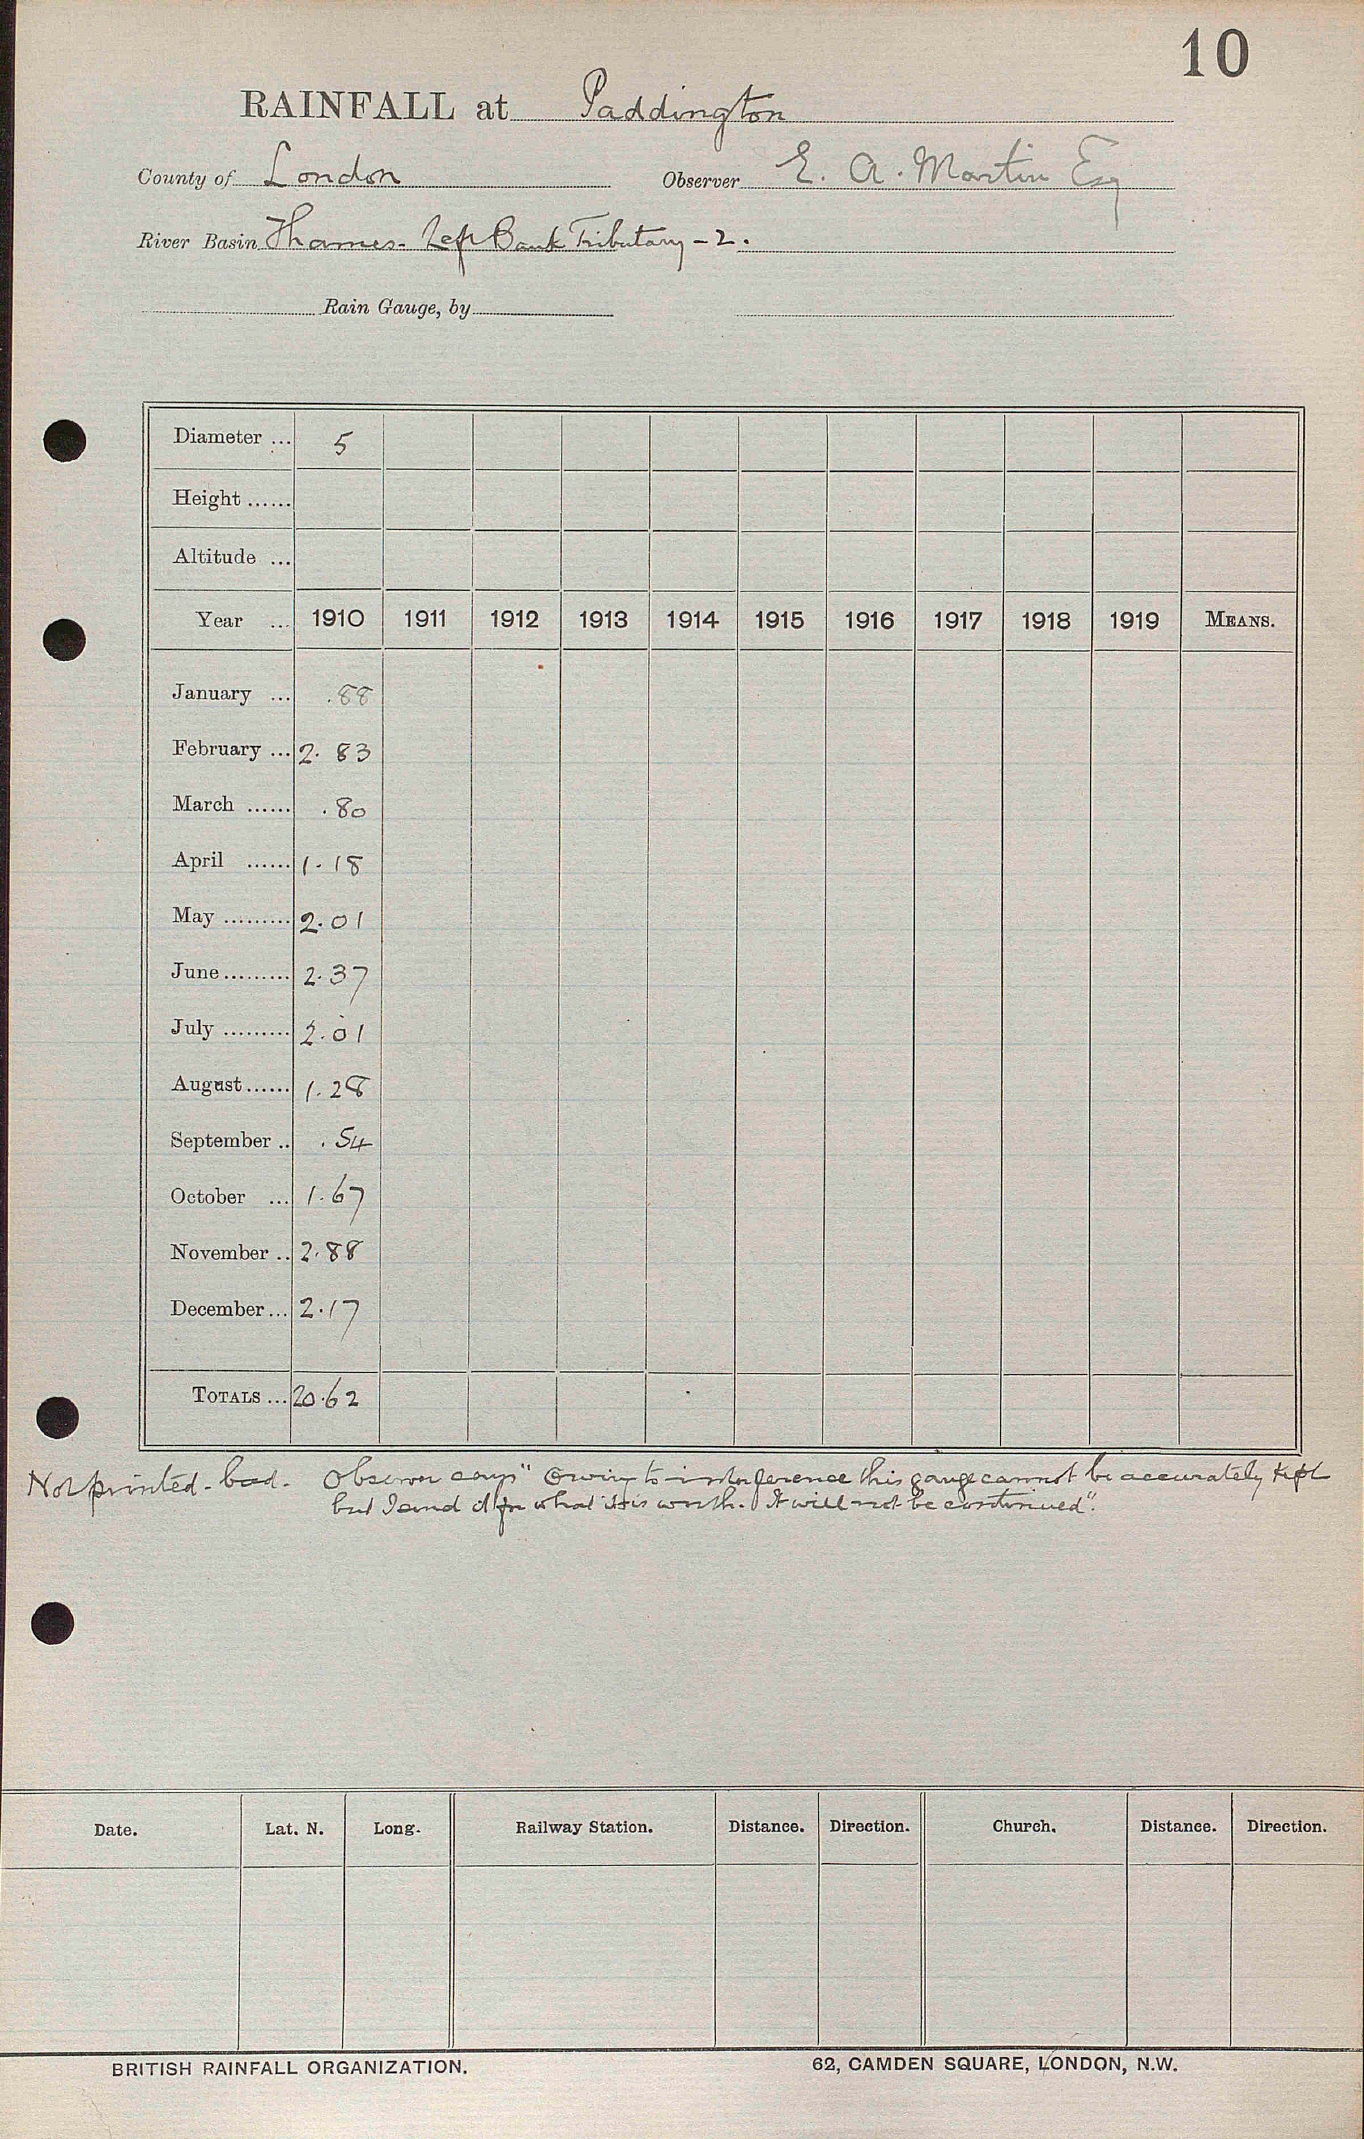 10
RAINFALL at Paddington
County of London Observer E. A. Martin Esq
River Basin Thames - Left Bank Tributary - 2.
Rain Gauge, by
Diameter ... 5
Height ......
Altitude ...
Year ... 1910 1911 1912 1913 1914 1915 1916 1917 1918 1919 MEANS.
January ... .88
February ... 2.83
March ...... .80
April ...... 1.18
May ......... 2.01
June ......... 2.37
July ......... 2.01
August ...... 1.28
September .. .54
October ... 1.67
November .. 2.88
December ... 2.17
TOTALS ... 20.62
Not printed - bad. Observer says "Owing to interference this gauge cannot be accurately kept
but I send it for what it is worth. It will not be continued".
Date. Lat. N. Long. Railway Station. Distance. Direction. Church. Distance. Direction.
BRITISH RAINFALL ORGANIZATION. 62, CAMDEN SQUARE, LONDON, N.W.